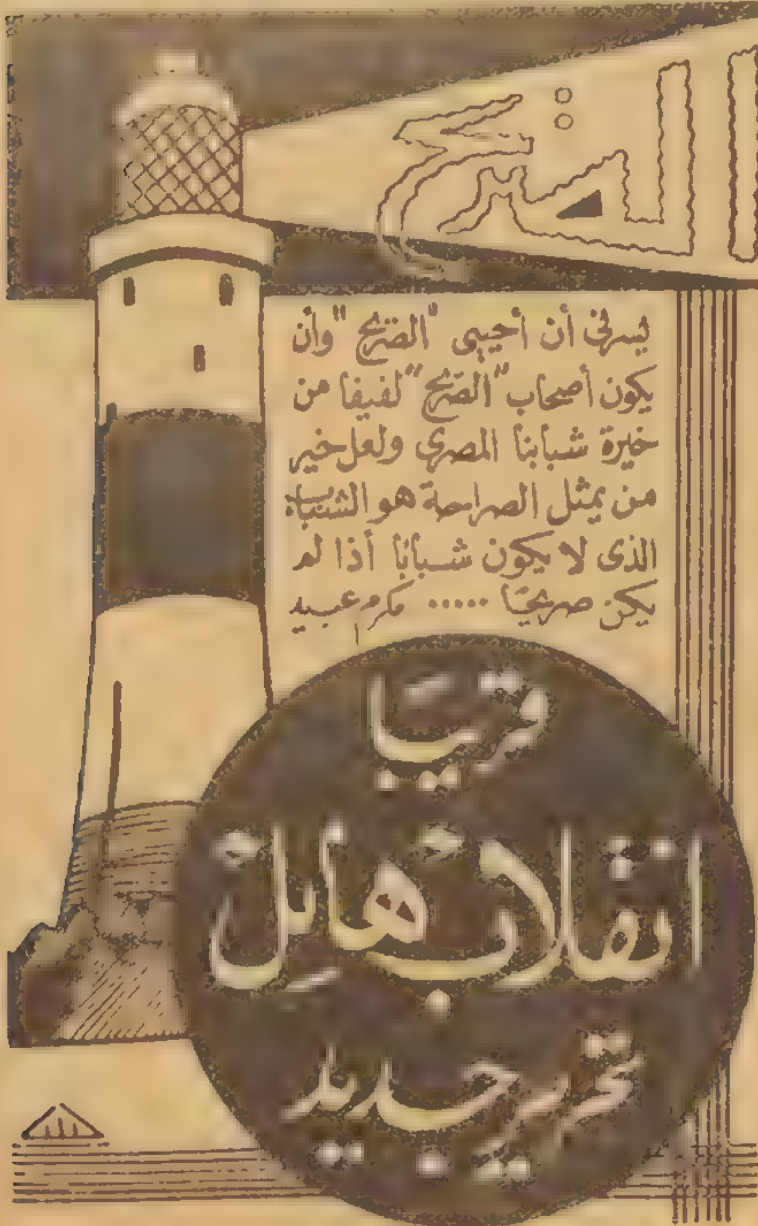 الصريح
يسرني أن أحيي "الصريح" وأن
يكون أصحاب "الصريح" لفيفا من
خيرة شبابنا المصري ولعل خير
من يمثل الصراحة هو الشباب
الذي لا يكون شبابًا أذا لم
يكن صريحًا ..... مكرم عبيد
قريبًا
انقلاب هائل
تحرير جديد